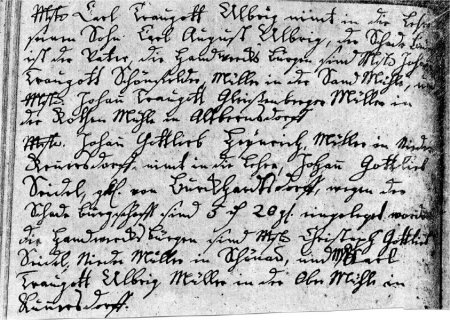 Mstr. Carl Traugott Ulbrig nimt in die Lehre
seinen Sohn Carl August Ulbrig, der Schade Bürge
ist der Vater, die Handwercks bürgen sind Mstr. Johann
Traugott Schönfelder, Müller in der Sand Mühle, und
Mstr. Johann Traugott Gleisenberger Müller in
der Rothen Mühle in Altbernsdorff
Mstr. Johann Gottlieb Heinrich, Müller in Nieder
Rennersdorff, nimt in die Lehre, Johann Gottlieb
Seidel, geb. von Burckhardtsdorff, wegen der
Schade bürgschafft sind 5 rl 20 gl. eingeleget worden
die Handwercks bürgen sind Mstr. Christoph Gottlieb
Seidel Nieder Müller in und Mstr. Carl
Traugott Ulbrig Müller in der Ober Mühle in
Rennersdorff.